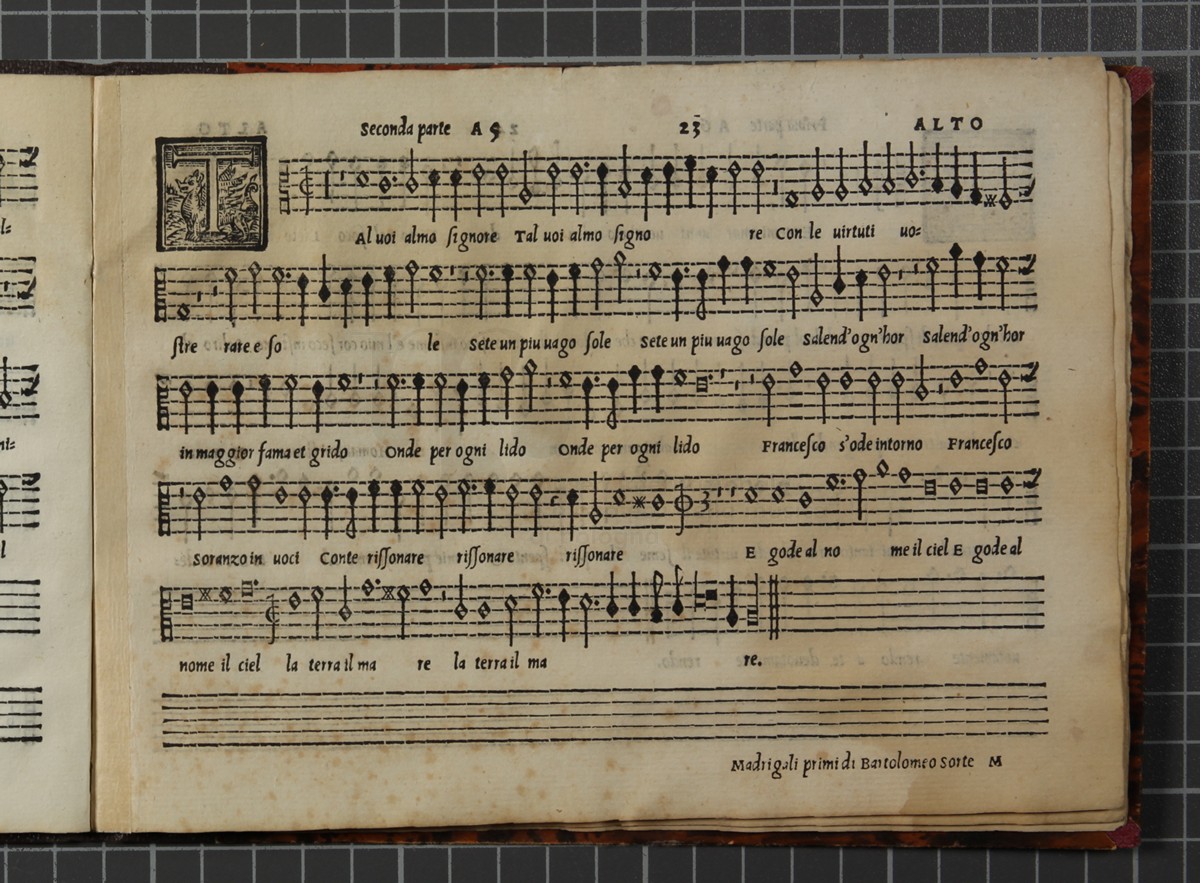 Seconda parte A 5 23 ALTO
TAl uoi almo ſignore Tal uoi almo ſigno re Con le uirtuti uo=
ſtre rare e ſo le Sete un piu uago ſole Sete un piu uago ſole Salend'ogn'hor Salend'ogn'hor
in maggior fama et grido Onde per ogni lido Onde per ogni lido Franceſco s'ode intorno Franceſco
Soranzo in uoci Conte riſſonare riſſonare riſſonare E gode al no me il ciel E gode al
nome il ciel la terra il ma re la terra il ma re.
Madrigali primi di Bartolomeo Sorte M
l=
ni=
l